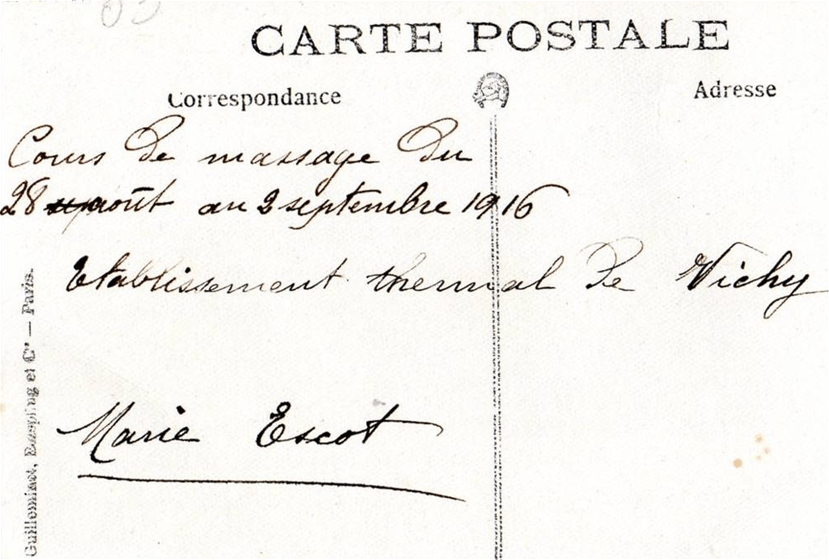 CARTE POSTALE
Correspondance
Adresse
Cours de massage du
28 août au 2 septembre 1916
Etablissement thermal de Vichy
Marie Escot
Guilleminot, Bœspflug et Cie — Paris.